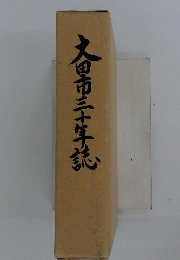 大田市三十年誌